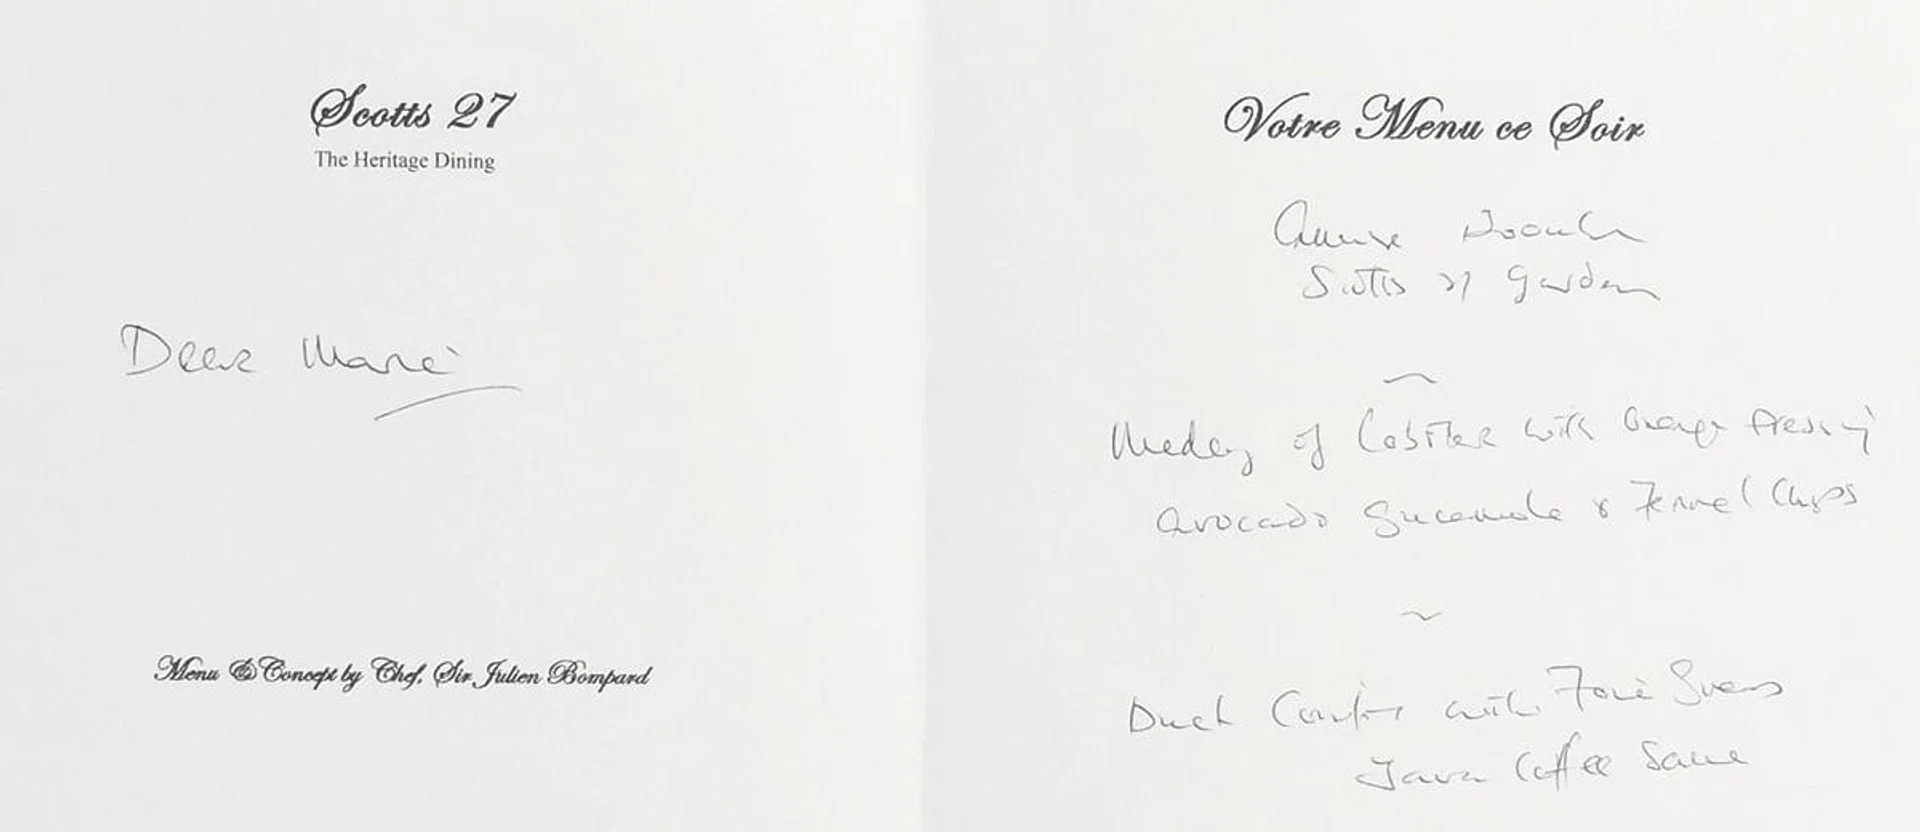 Scotts 27
The Heritage Dining
Dear Marie
Menu & Concept by Chef, Sir Julien Bompard
Votre Menu ce Soir
Amuse Bouche
Scotts 27 Garden
~
Medley of Lobster with Orange Dressing
Avocado Gucamole & Fennel Chips
~
Duck Confit with Foie Gras
Java Coffee Sauce